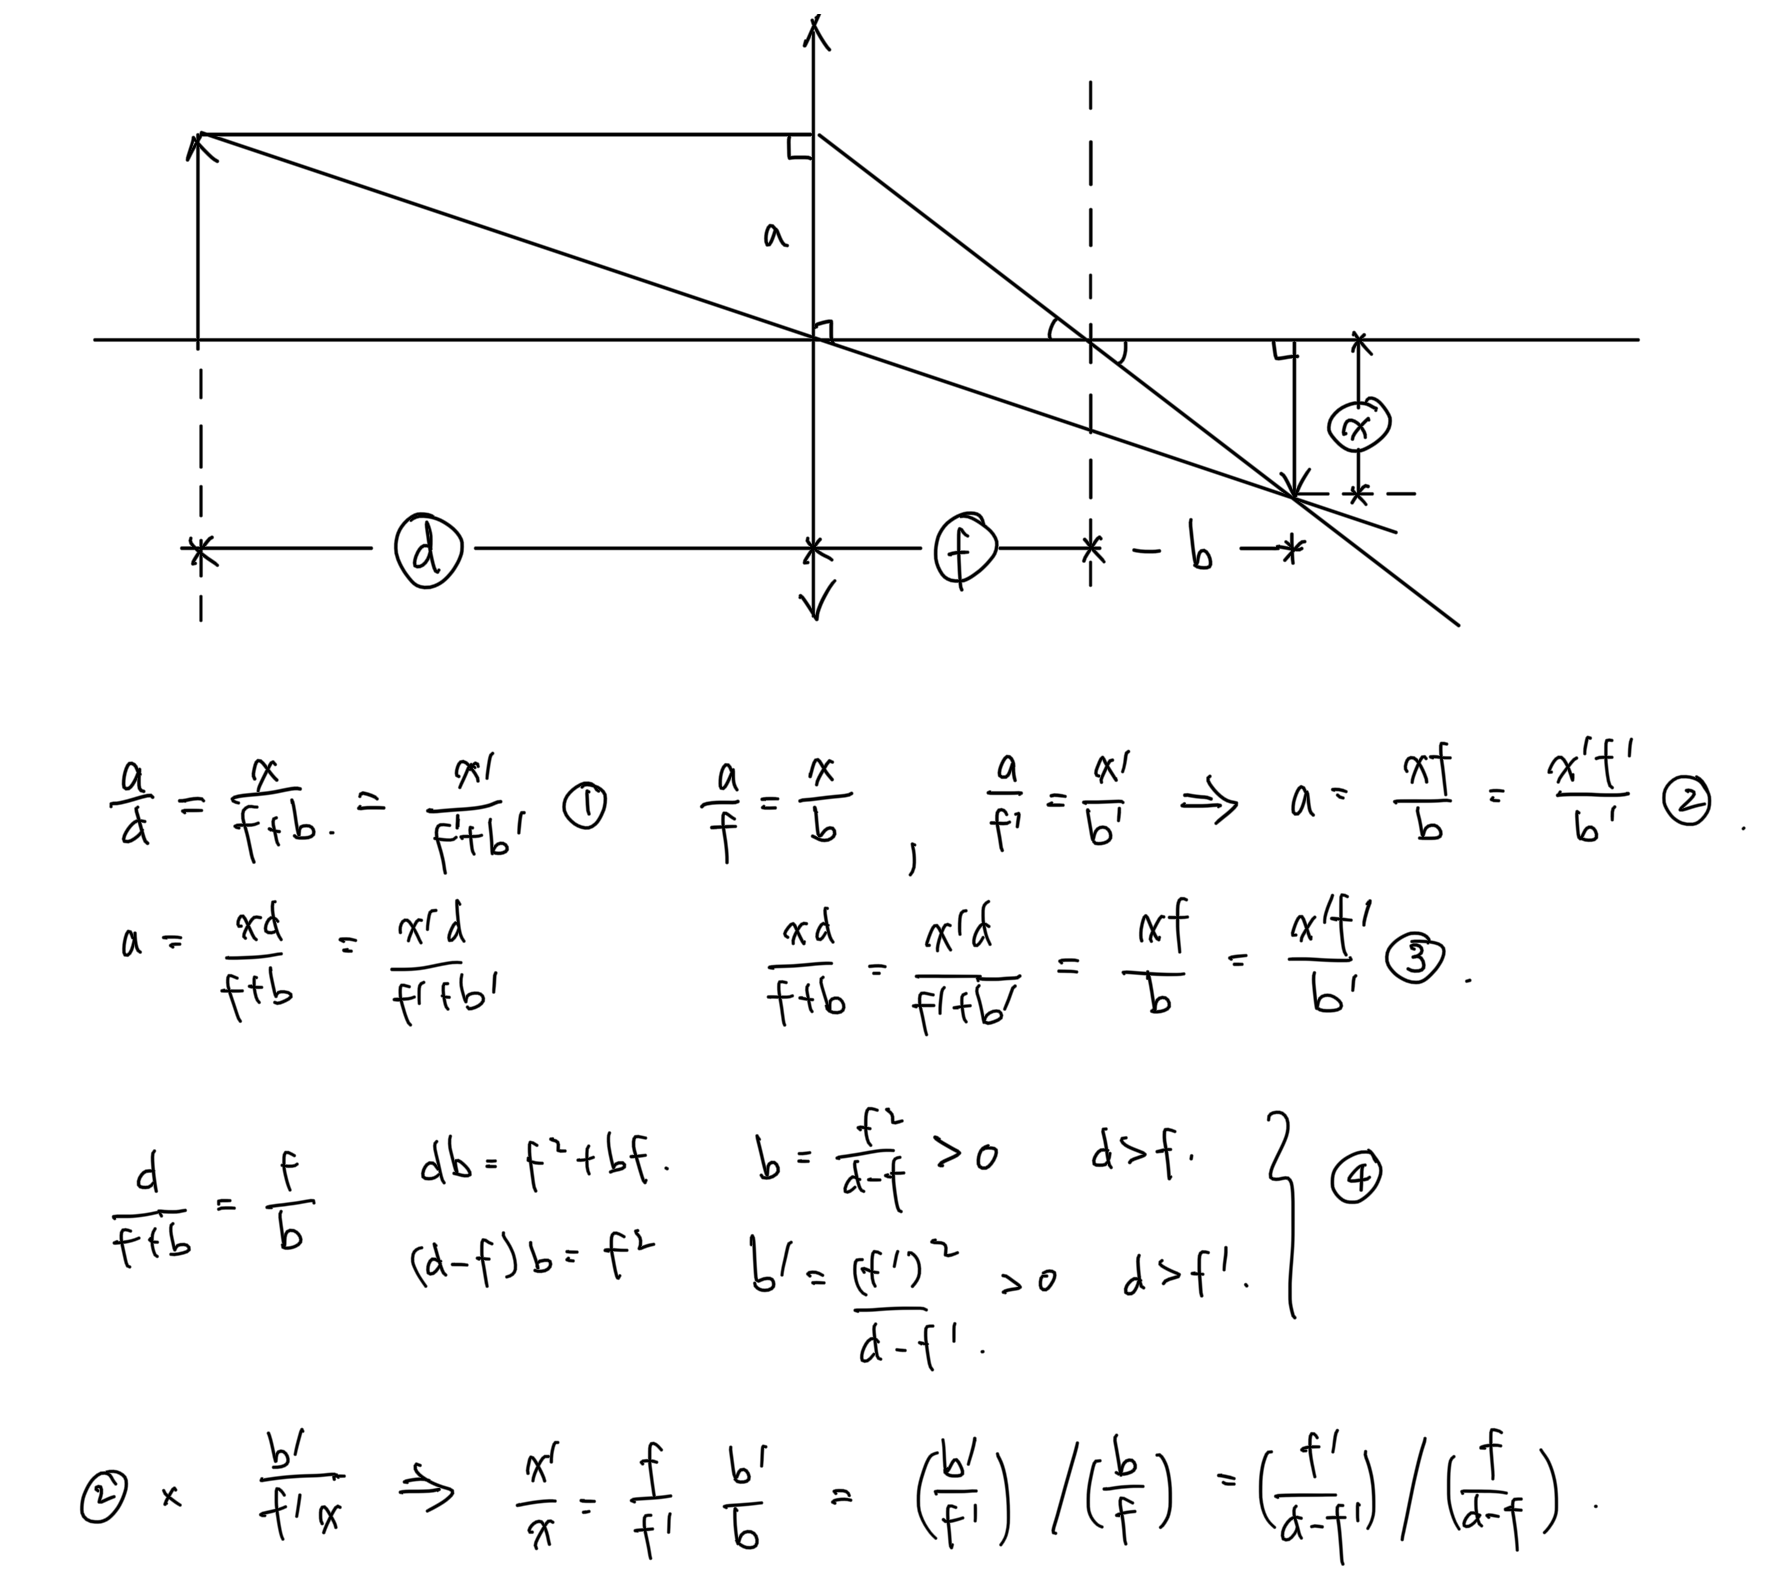 a
x
d f b
a/d = x/(f+b). = x'/(f'+b') ① a/f = x/b , a/f' = x'/b' ⇒ a = xf/b = x'f'/b' ② .
a = xd/(f+b) = x'd/(f'+b') xd/(f+b) = x'd/(f'+b') = xf/b = x'f'/b' ③ .
d/(f+b) = f/b db = f²+bf. b = f²/(d-f) > 0 d>f. } ④
(d-f)b = f² b' = (f')²/(d-f'). > 0 d>f'.
② × b'/(f'x) ⇒ x'/x = f/f' b'/b = (b'/f') / (b/f) = (f'/(d-f')) / (f/(d-f)) .